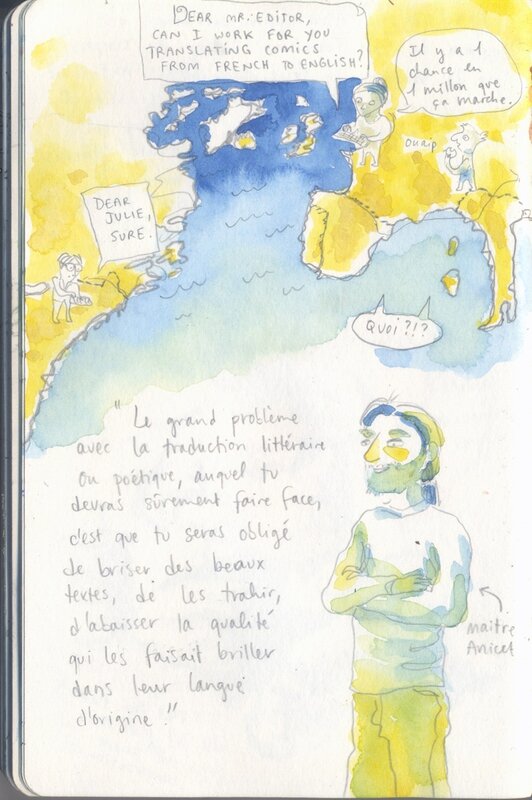 DEAR MR. EDITOR,
CAN I WORK FOR YOU
TRANSLATING COMICS
FROM FRENCH TO ENGLISH?
Il y a 1
chance en
1 millon que
ça marche.
Ouaip
DEAR
JULIE,
SURE.
QUOI ?!?
"Le grand problème
avec la traduction littéraire
ou poétique, auquel tu
devras sûrement faire face,
c'est que tu seras obligé
de briser des beaux
textes, de les trahir,
d'abaisser la qualité
qui les faisait briller
dans leur langue
d'origine."
maître
Anicet